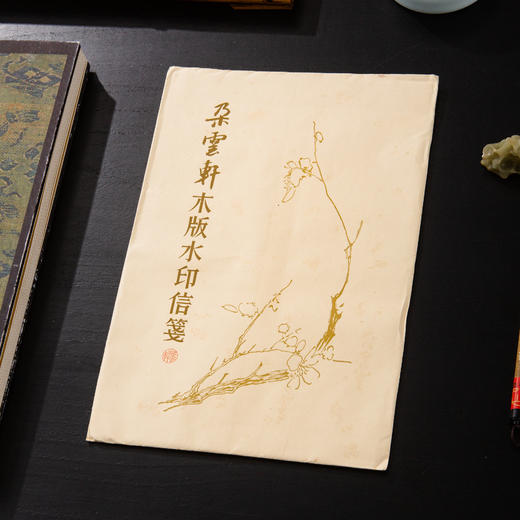 朵雲軒木版水印信箋